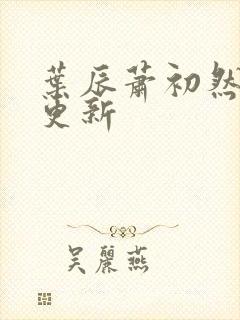 葉辰蕭初然
更新
吴麗燕